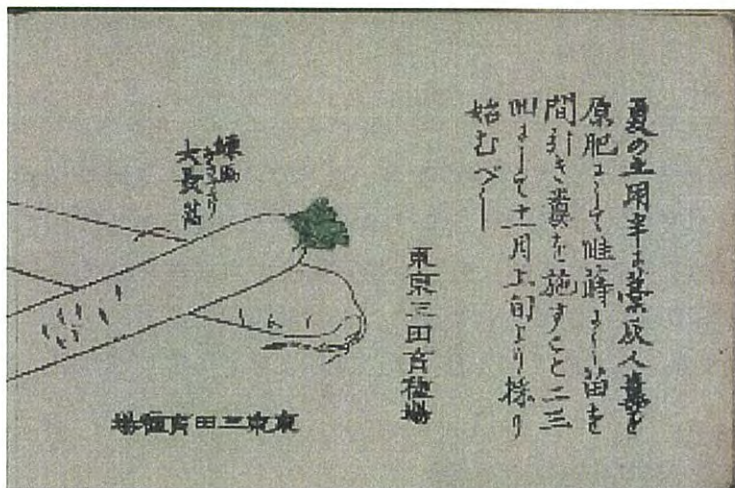 夏の土用半に藁灰人糞を
原肥にして唯蒔にし苗を
間引き糞を施すこと二三
回にして十一月上旬より採り
始むべし
東京三田育種場
練馬
大長
東京三田育種場